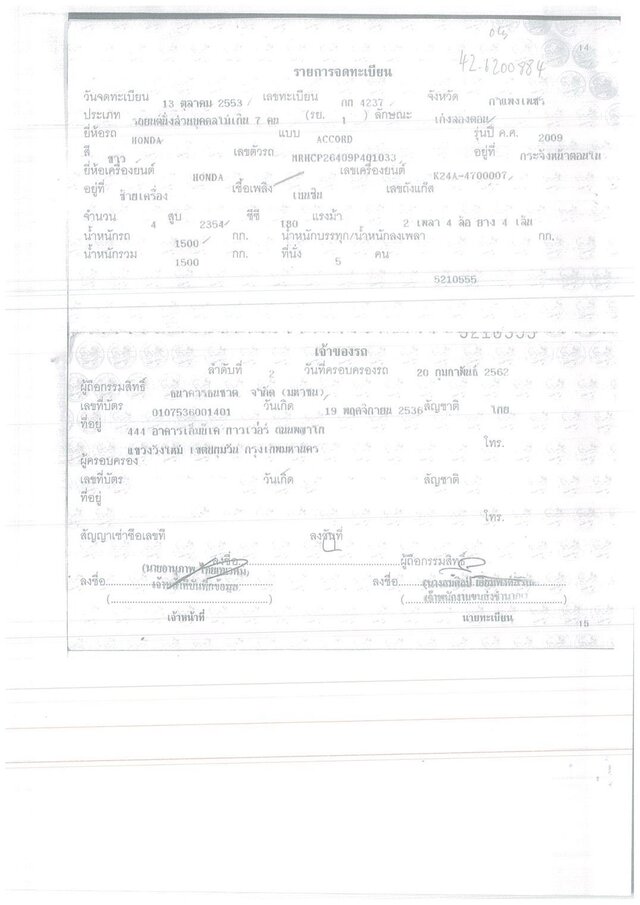 14
42-1200884
รายการจดทะเบียน
วันจดทะเบียน 13 ตุลาคม 2553 เลขทะเบียน กก 4237 จังหวัด กำแพงเพชร
ประเภท รถยนต์นั่งส่วนบุคคลไม่เกิน 7 คน (รย. 1 ) ลักษณะ เก๋งสองตอน
ยี่ห้อรถ HONDA แบบ ACCORD รุ่นปี ค.ศ. 2009
สี ขาว เลขตัวรถ MRHCP26409P401033 อยู่ที่ กระจังหน้าตอนใน
ยี่ห้อเครื่องยนต์ HONDA เลขเครื่องยนต์ K24A-4700007
อยู่ที่ ซ้ายเครื่อง เชื้อเพลิง เบนซิน เลขถังแก๊ส
จำนวน 4 สูบ 2354 ซีซี 180 แรงม้า 2 เพลา 4 ล้อ ยาง 4 เส้น
น้ำหนักรถ 1500 กก. น้ำหนักบรรทุก/น้ำหนักลงเพลา กก.
น้ำหนักรวม 1500 กก. ที่นั่ง 5 คน
5210555
5210555
เจ้าของรถ
ลำดับที่ 2 วันที่ครอบครองรถ 20 กุมภาพันธ์ 2562
ผู้ถือกรรมสิทธิ์ ธนาคารธนชาต จำกัด (มหาชน)
เลขที่บัตร 0107536001401 วันเกิด 19 พฤศจิกายน 2536 สัญชาติ ไทย
ที่อยู่ 444 อาคารเอ็มบีเค ทาวเวอร์ ถนนพญาไท
แขวงวังใหม่ เขตปทุมวัน กรุงเทพมหานคร โทร.
ผู้ครอบครอง
เลขที่บัตร วันเกิด สัญชาติ
ที่อยู่
โทร.
สัญญาเช่าซื้อเลขที่ ลงวันที่
ลงชื่อ ผู้ถือกรรมสิทธิ์
ลงชื่อ เจ้าหน้าที่บันทึกข้อมูล ลงชื่อ
เจ้าหน้าที่ นายทะเบียน
15